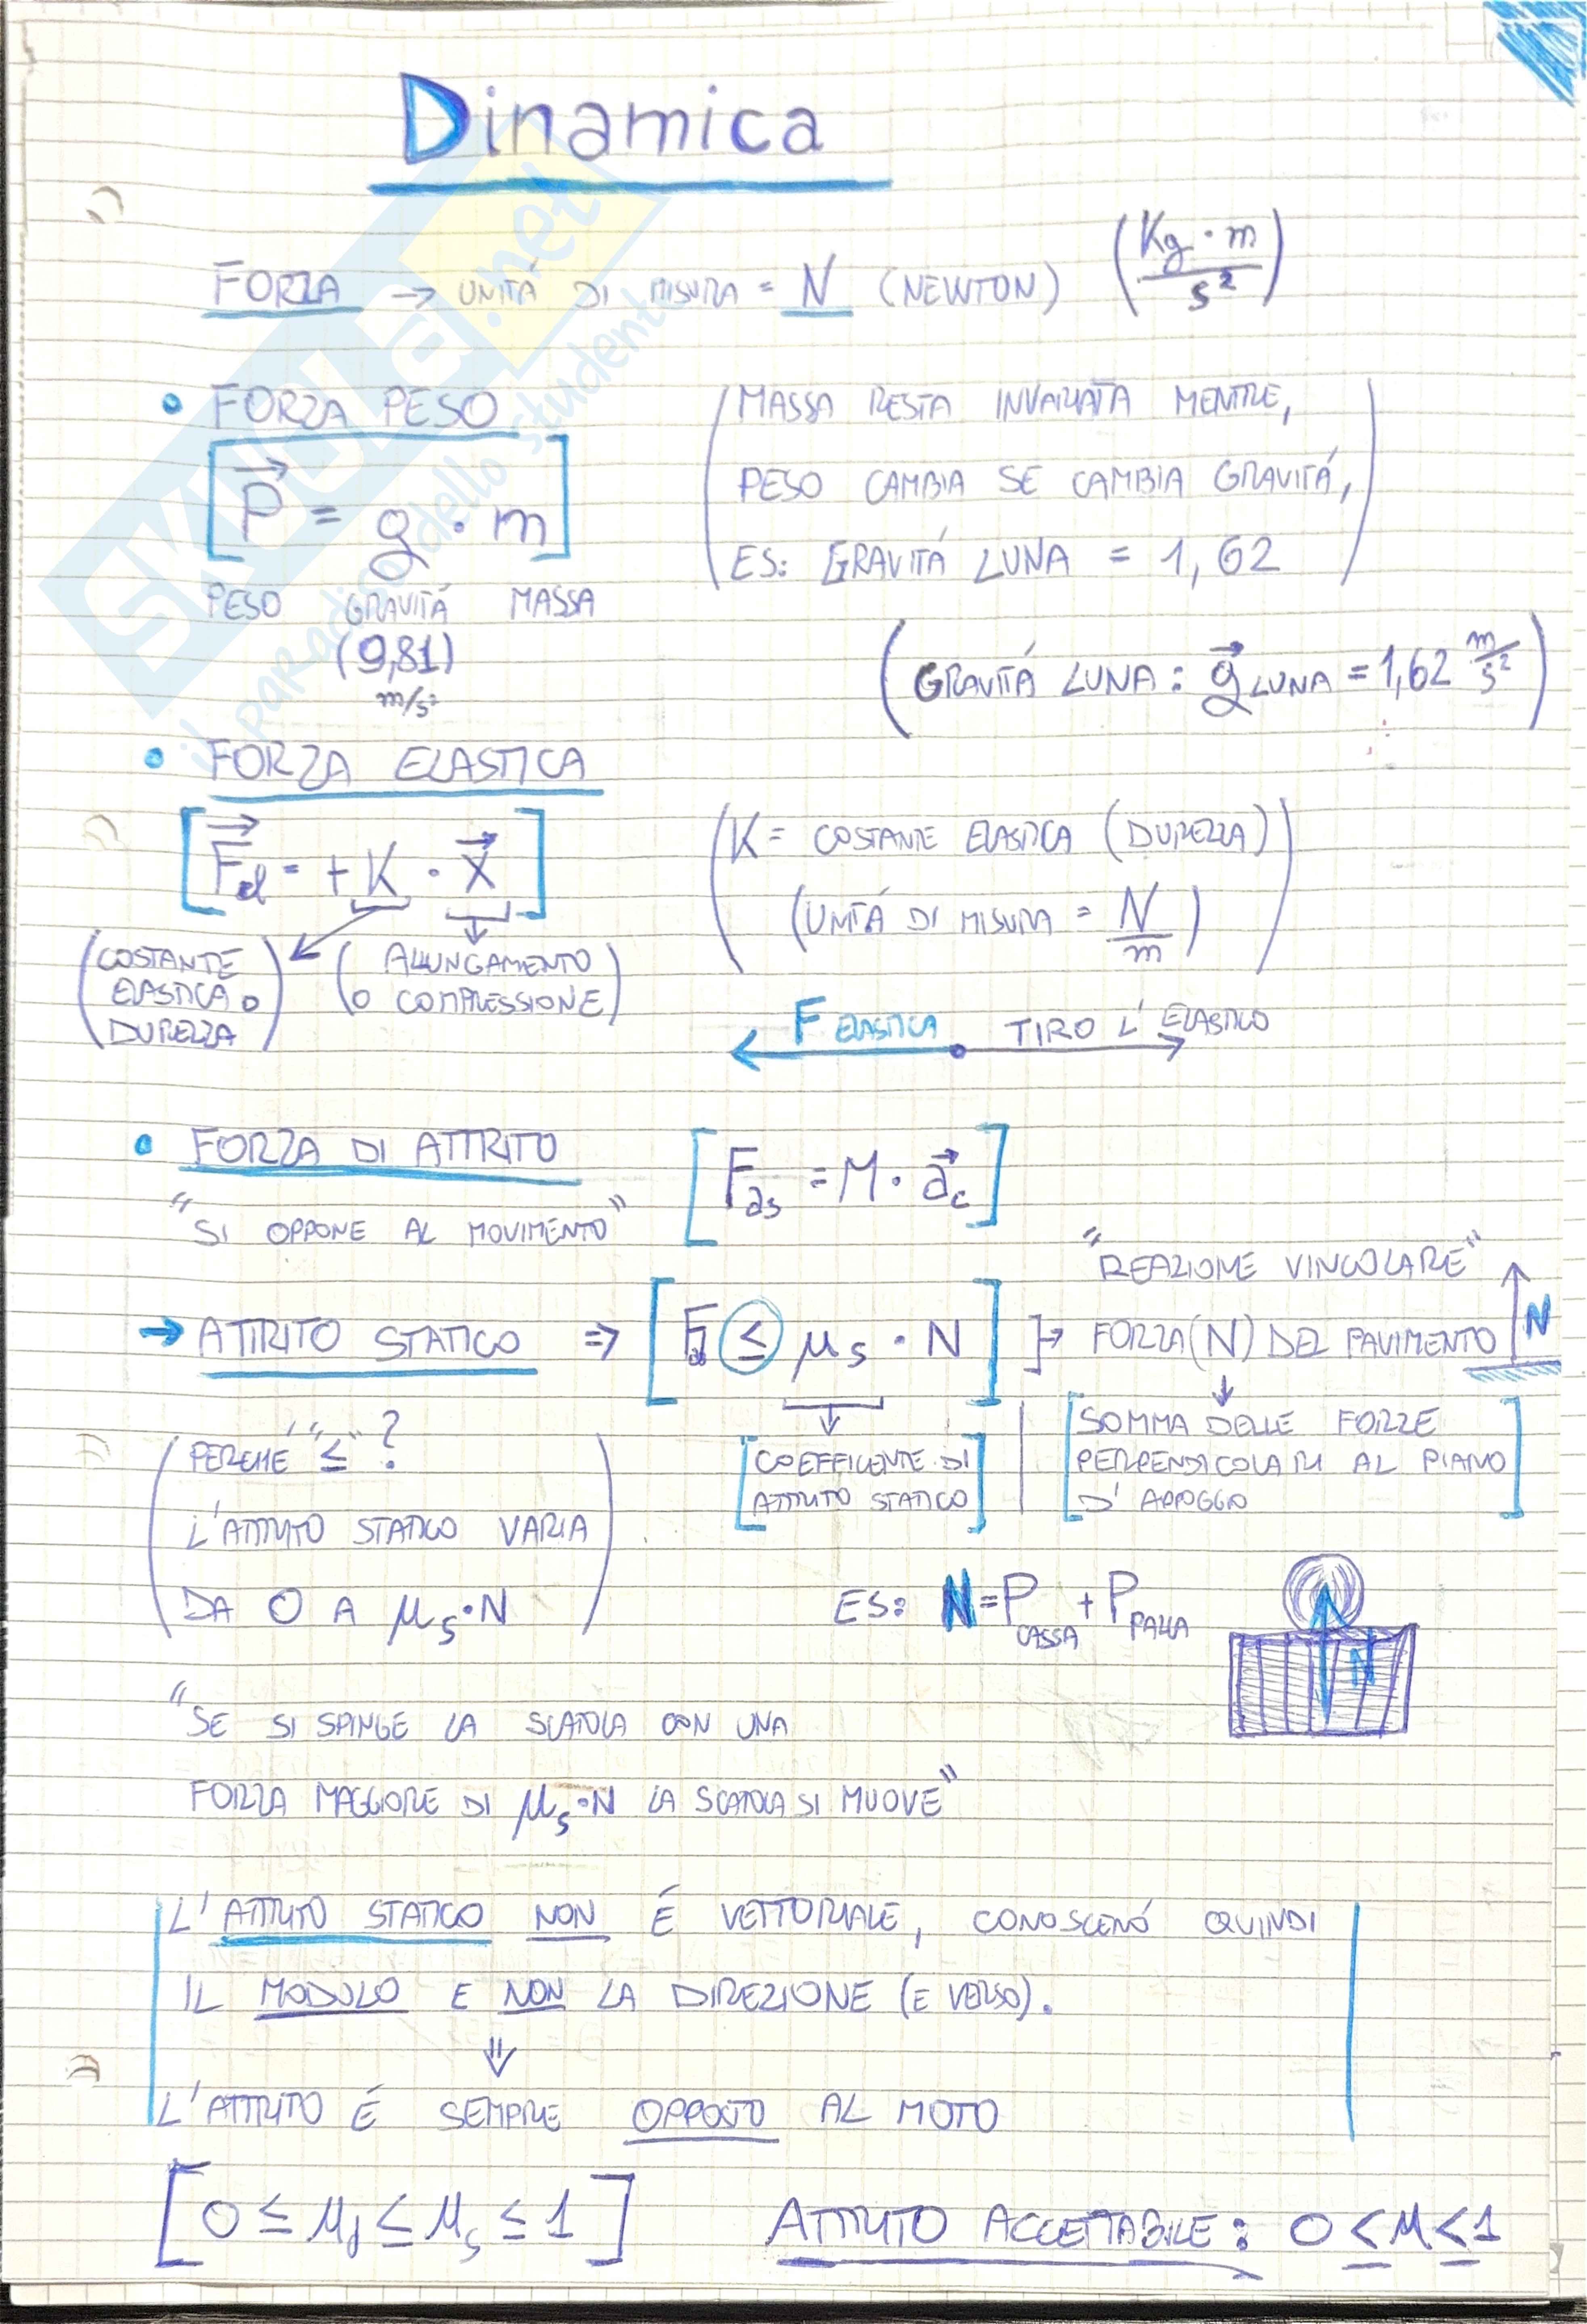 Dinamica
FORZA → UNITÁ DI MISURA = N (NEWTON) (Kg · m / s²)
• FORZA PESO
[P⃗ = g · m]
PESO GRAVITÁ MASSA
(9,81)
m/s²
(MASSA RESTA INVARIATA MENTRE,
PESO CAMBIA SE CAMBIA GRAVITÁ,
ES: GRAVITÁ LUNA = 1,62)
(GRAVITÁ LUNA: g⃗ LUNA = 1,62 m/s²)
• FORZA ELASTICA
[F⃗el = + K · x⃗]
(COSTANTE
ELASTICA O
DUREZZA)
(ALLUNGAMENTO
O COMPRESSIONE)
(K = COSTANTE ELASTICA (DUREZZA)
(UNITÁ DI MISURA = N/m))
F ELASTICA TIRO L'ELASTICO
• FORZA DI ATTRITO [Fas = M · a⃗c]
"SI OPPONE AL MOVIMENTO"
"REAZIONE VINCOLARE"
→ ATTRITO STATICO ⇒ [Fas ≤ μs · N] → FORZA (N) DEL PAVIMENTO N
[COEFFICENTE DI
ATTRITO STATICO]
[SOMMA DELLE FORZE
PERPENDICOLARI AL PIANO
D'APPOGGIO]
(PERCHÉ "≤"?
L'ATTRITO STATICO VARIA
DA O A μs·N)
ES: N = P CASSA + P PALLA
N
"SE SI SPINGE LA SCATOLA CON UNA
FORZA MAGGIORE DI μs·N LA SCATOLA SI MUOVE"
L'ATTRITO STATICO NON É VETTORIALE, CONOSCERÓ QUINDI
IL MODULO E NON LA DIREZIONE (E VERSO).
⇓
L'ATTRITO É SEMPRE OPPOSTO AL MOTO
[0 ≤ μd ≤ μs ≤ 1] ATTRITO ACCETTABILE: 0 ≤ μ ≤ 1
SKUOLA.net
il paradiso dello studente